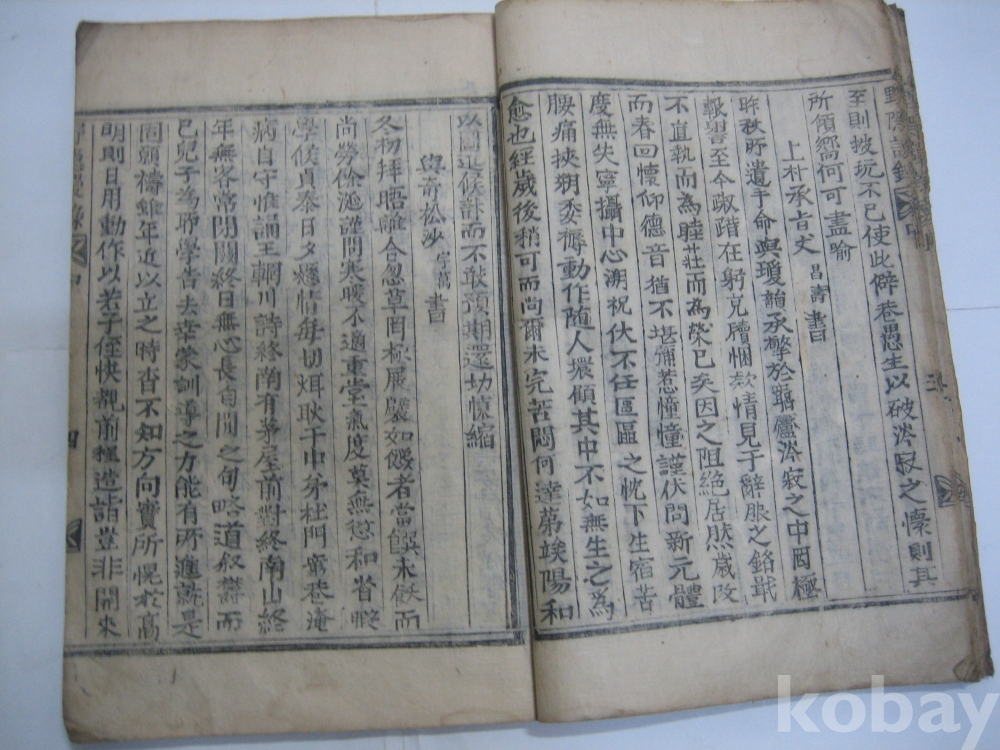 至則披玩不已使此僻巷愚生以破涔寂之懷則其
所傾嚮何可盡喻
上朴承旨文 昌壽 書
昨秋所遺手命與瓊韻承擎於寂之中因極
報響至今踧踖在躬兄牘悃款情見于辭服之銘哉
不直執而為睦莊而為榮已矣因之阻絕居然歲改
而春回懷仰德音猶不堪彌惹憧憧謹伏問新元體
度無失寧攝中心溯祝伏不任區區之忱下生宿苦
腰痛挾朔添褥動作隨人壞傾其中不如無生之為
愈也經歲後稍可而尚爾未完苦悶何達第竢陽和
以圖進候計而不敢預期還切悚縮
與奇松沙 宇萬 書
冬初拜晤離合忽草自極展嚴如饑者當饌未飫而
尚勞徐涎謹問寒暖不適重棠氣度莫無愆和省暇
學候貞泰日夕懸情每切炯耿于中弟杜門窮巷淹
病自守惟誦王輞川詩終南有茅屋前對終南山終
年無客常閉關終日無心長自閒之句略道叙鬱而
已兒子為聆學告去幸蒙訓導之方能有所進就是
固願禱雖年近以立之時杳不知方向實所愰於高
明則日用動作以若子侄快觀前程造詣豈非開來
四
kobay